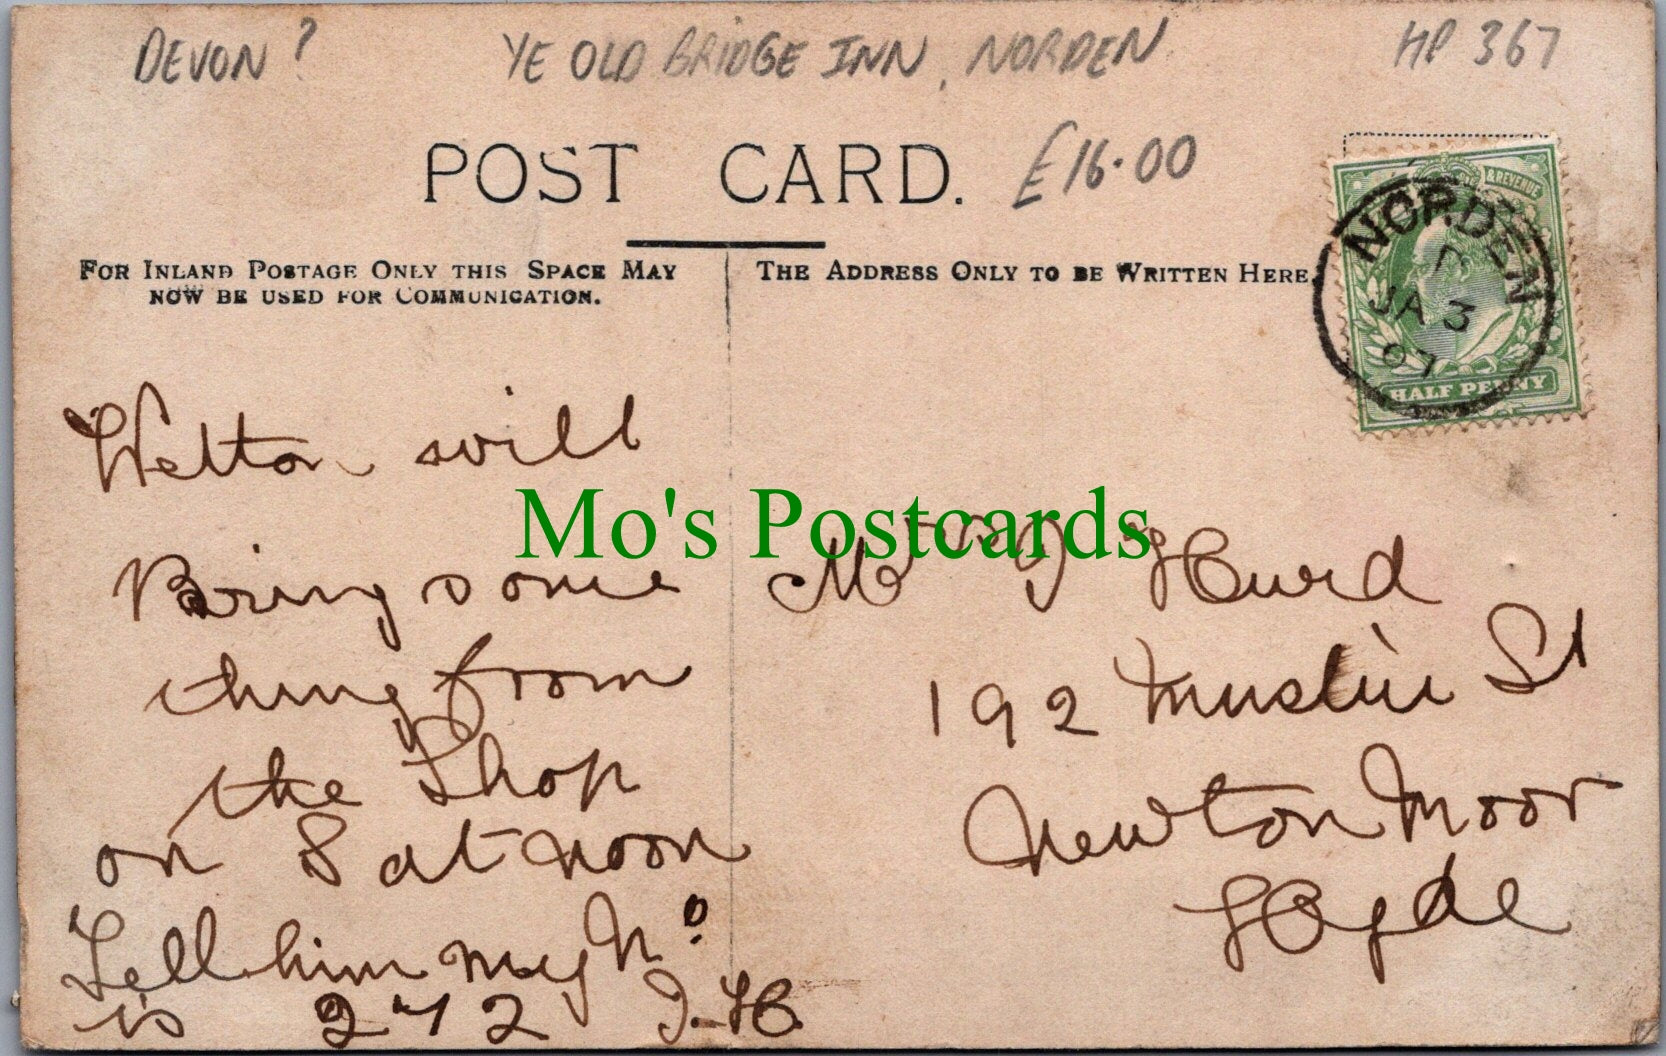 DEVON?
YE OLD BRIDGE INN, NORDEN
HP 367
POST CARD.
£16.00
& REVENUE
NORDEN
JA 3
07
HALF PENNY
FOR INLAND POSTAGE ONLY THIS SPACE MAY
NOW BE USED FOR COMMUNICATION.
THE ADDRESS ONLY TO BE WRITTEN HERE.
Welton will
Bring some
thing from
the Shop
on Sat noon
Tell him my No
is 272 J.H.
Mo's Postcards
Mrs J Hurd
192 Muslin St
Newton Moor
Hyde